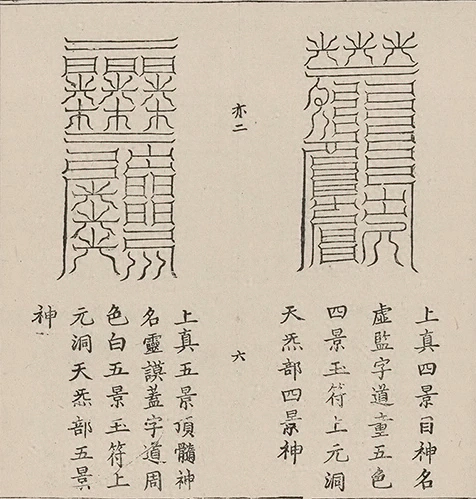 上真四景目神名
虛監字道童五色
四景玉符上元洞
天炁部四景神
亦二
六
上真五景頂髓神
名靈謨蓋字道周
色白五景玉符上
元洞天炁部五景
神